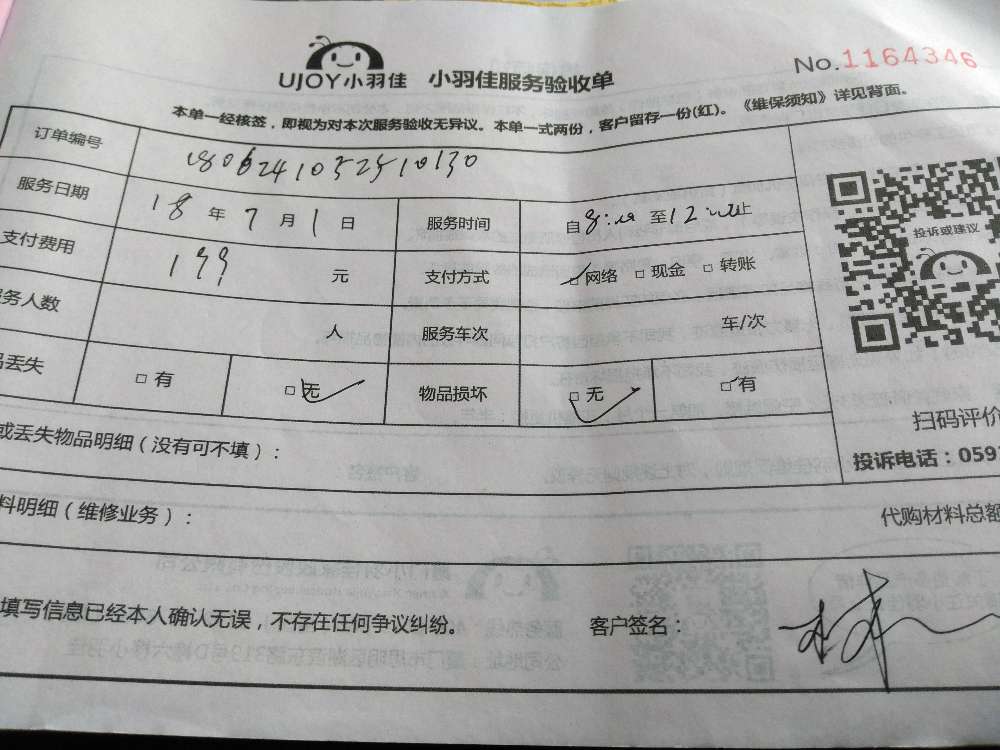 UJOY小羽佳 小羽佳服务验收单 No.1164346
本单一经核签，即视为对本次服务验收无异议。本单一式两份，客户留存一份(红)。《维保须知》详见背面。
订单编号 1806241052510130
服务日期 18 年 7 月 1 日 服务时间 自 至12 止
支付费用 199 元 支付方式 □网络 □现金 □转账
务人数 人 服务车次 车/次
丢失 □有 □无 物品损坏 □无 □有
投诉或建议
扫码评价
或丢失物品明细（没有可不填）：
投诉电话：059
料明细（维修业务）：
代购材料总额
填写信息已经本人确认无误，不存在任何争议纠纷。 客户签名：